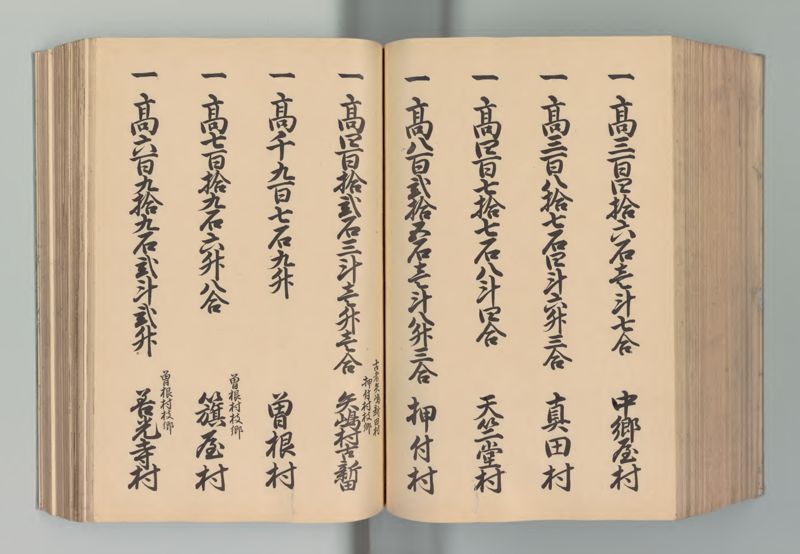 一高三百四拾六石壱斗七合 中郷屋村
一高三百八拾七石四斗六升三合 真田村
一高四百七拾七石八斗四合 天竺堂村
一高八百弐拾五石壱斗八升三合 押付村
一高四百拾弐石三斗壱升壱合 古者矢嶋新田村 押付村枝郷 矢嶋村古新田
一高千九百七石九升 曽根村
一高七百拾九石六升八合 曽根村枝郷 籏屋村
一高六百九拾九石弐斗弐升 曽根村枝郷 善光寺村